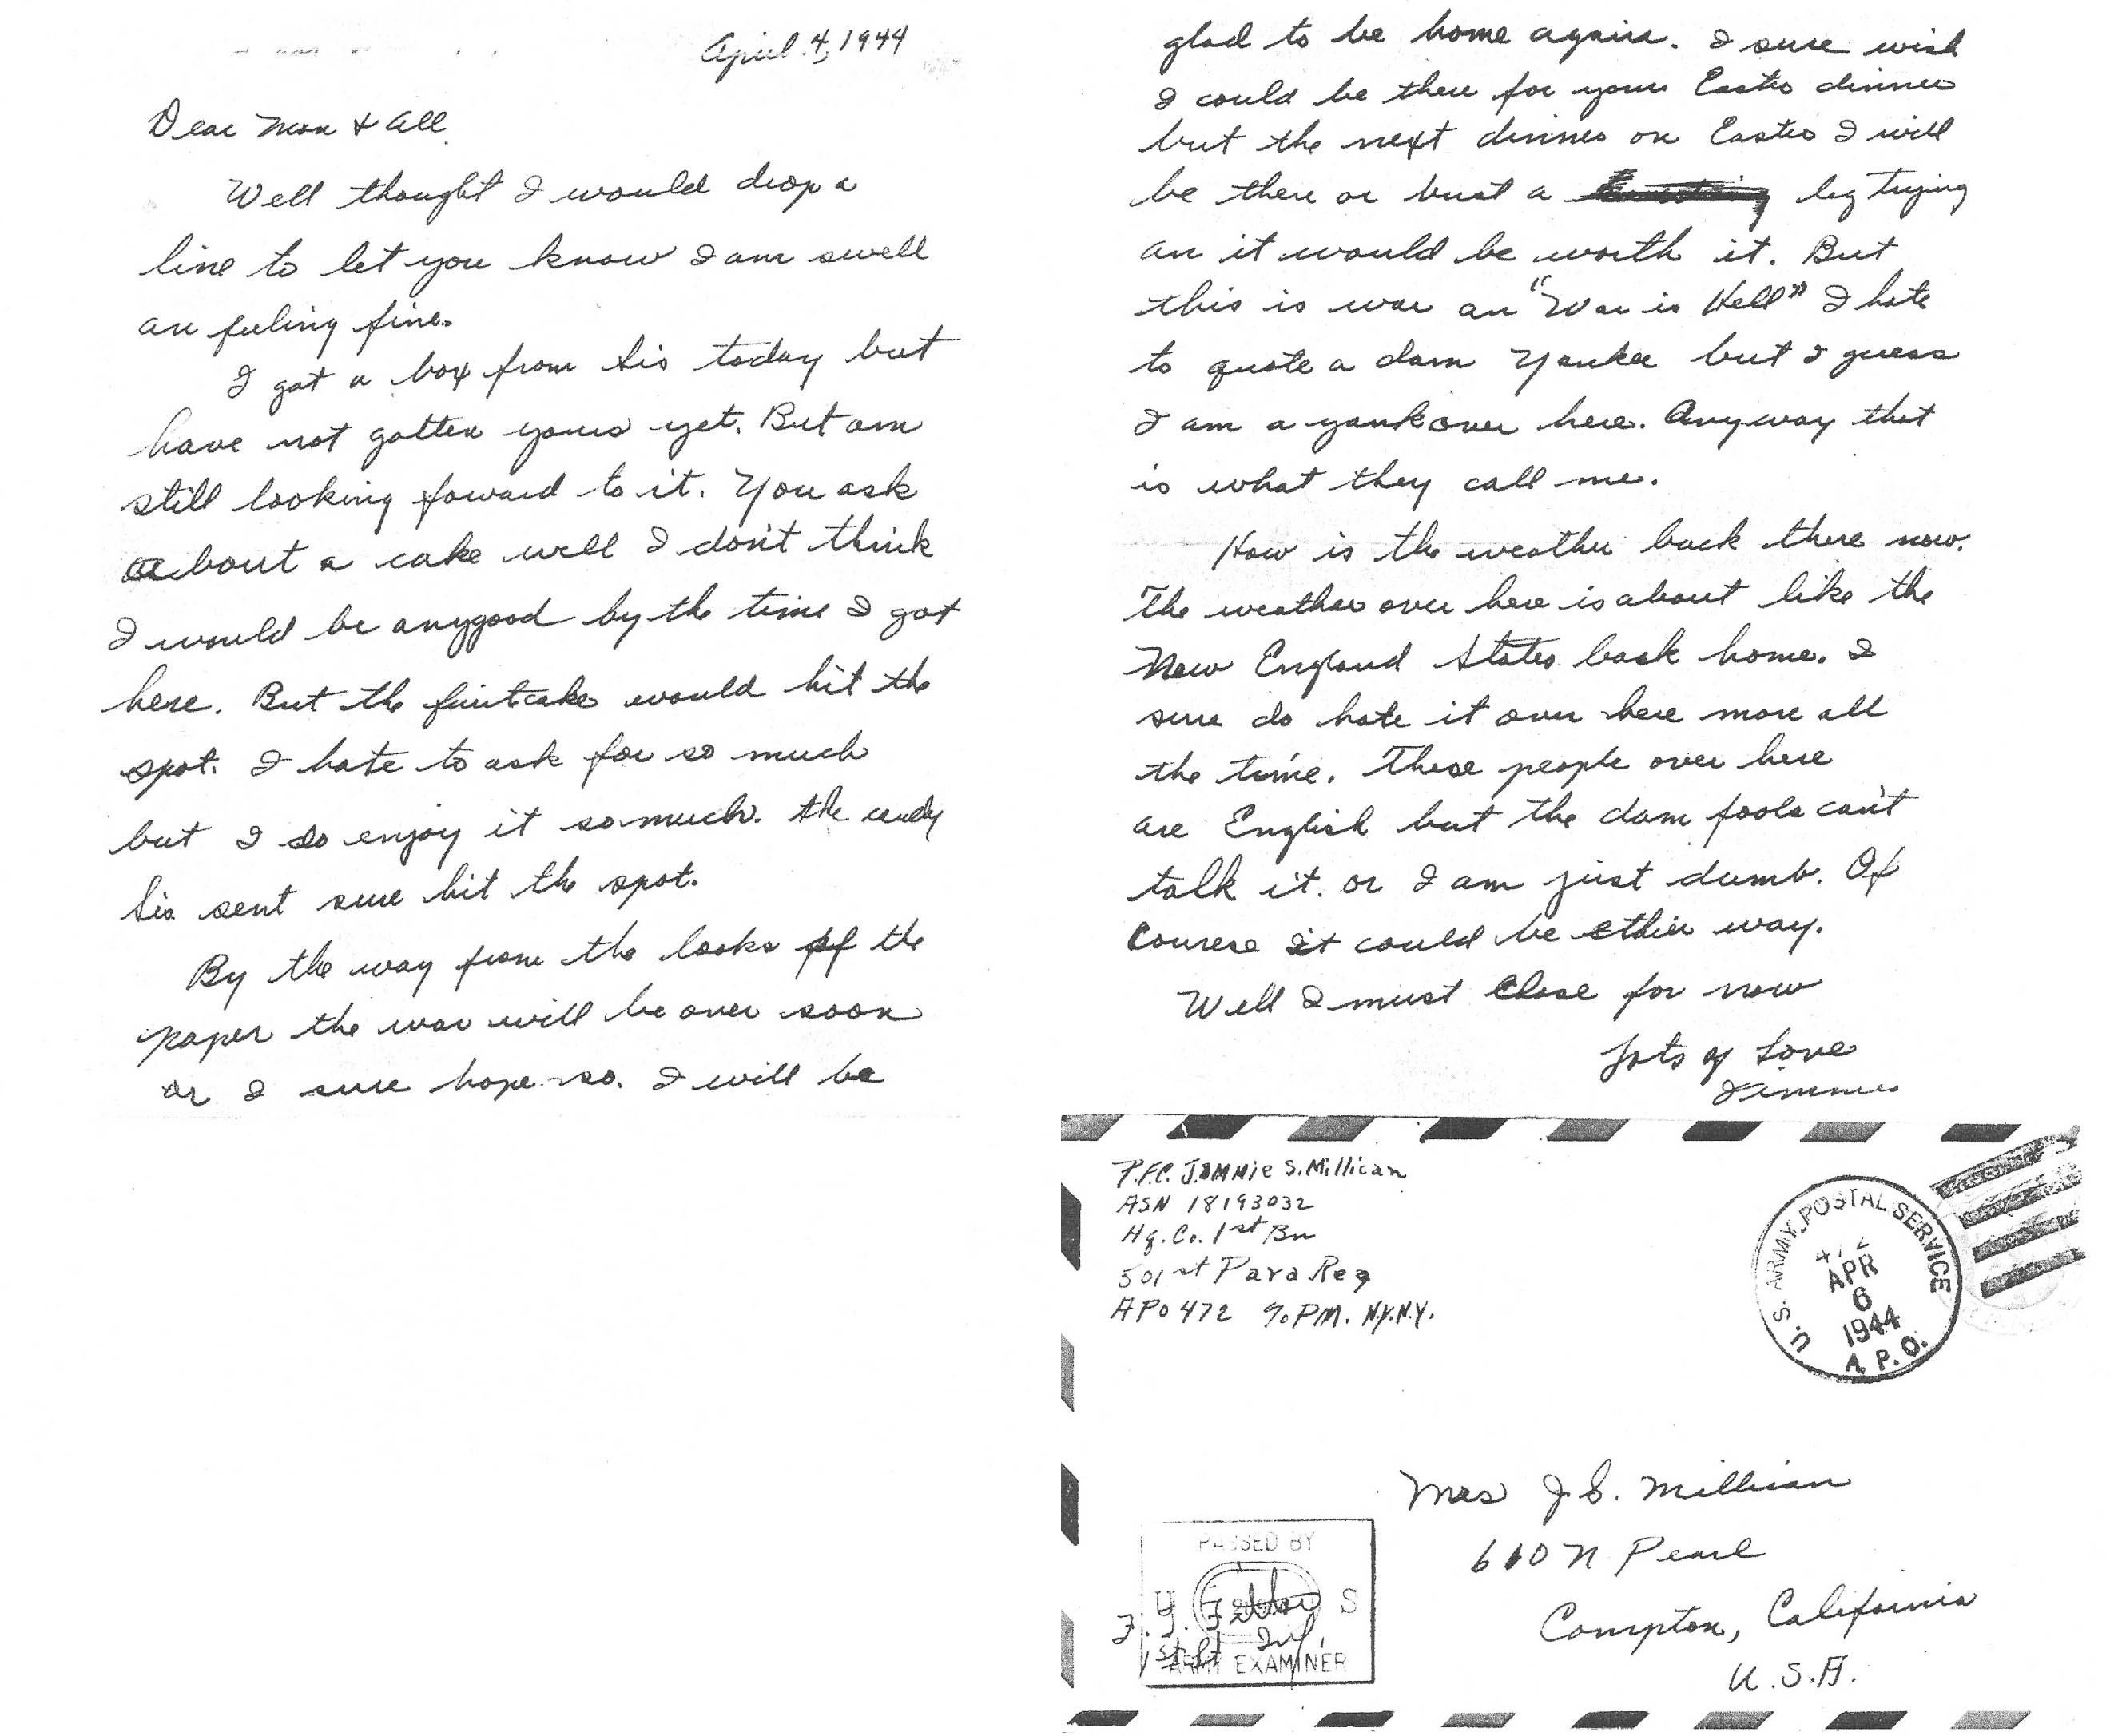 April 4, 1944
Dear Mom & all
Well thought I would drop a
line to let you know I am swell
an feeling fine.
I got a box from Sis today but
have not gotten yours yet. But am
still looking foward to it. You ask
about a cake well I don't think
I would be anygood by the time I got
here. But the fruitcake would hit the
spot. I hate to ask for so much
but I do enjoy it so much. the candy
Sis sent sure hit the spot.
By the way from the looks of the
paper the war will be over soon
or I sure hope so. I will be
glad to be home again. I sure wish
I could be there for your Easter dinner
but the next dinner on Easter I will
be there or bust a leg trying
an it would be worth it. But
this is war an "War is Hell" I hate
to quote a dam Yankee but I guess
I am a yank over here. Anyway that
is what they call me.
How is the weather back there now.
The weather over here is about like the
New England States back home. I
sure do hate it over here more all
the time. These people over here
are English but the dam fools can't
talk it. or I am just dumb. Of
Course it could be ethier way.
Well I must close for now
Lots of Love
Jimmie
P.F.C. Jimmie S. Millican
ASN 18193032
Hq. Co. 1st Bn
501st Para Reg
APO 472 % PM. N.Y.N.Y.
U.S. ARMY POSTAL SERVICE
472
APR
6
1944
A.P.O.
Mrs J. S. Millican
610 N Pearl
Compton, California
U.S.A.
PASSED BY
U S
F. J.
1st Lt Inf.
ARMY EXAMINER